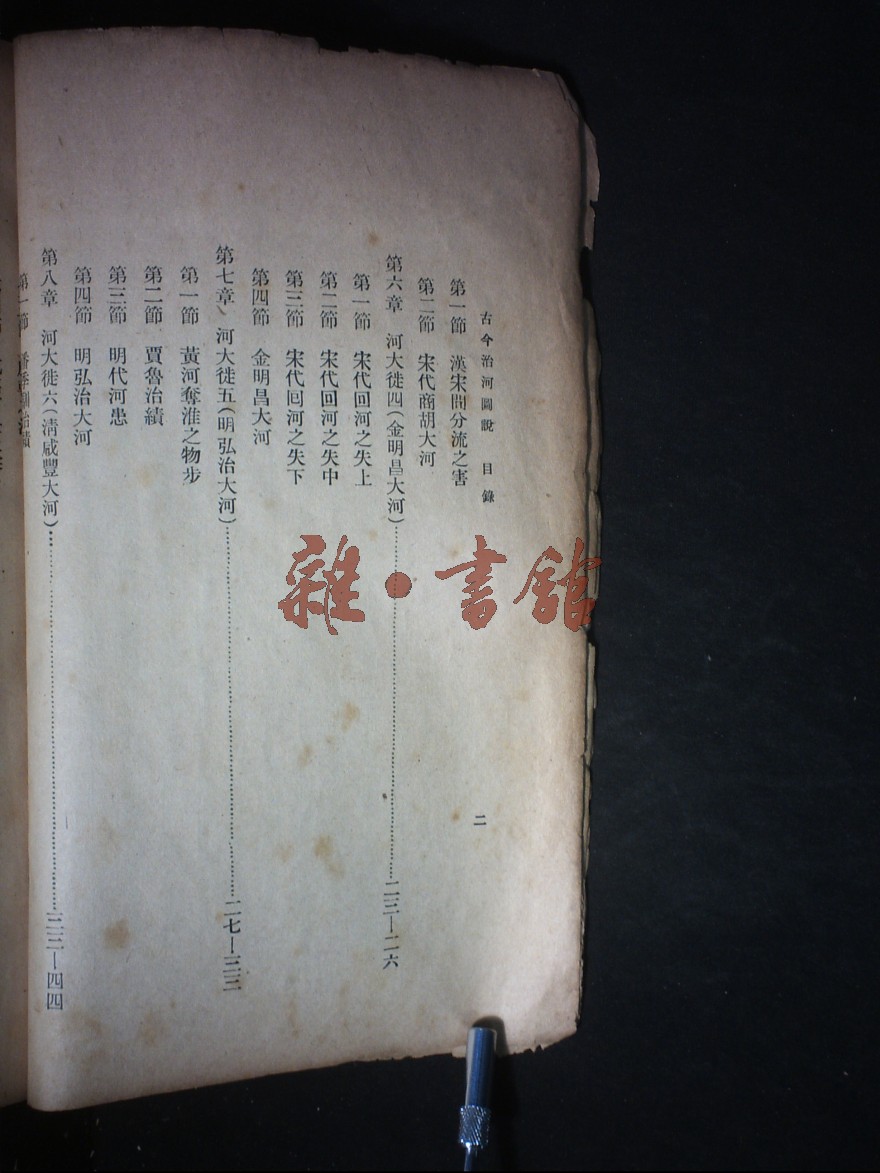 古今治河圖說 目錄
二
第一節 漢宋間分流之害
第二節 宋代商胡大河
第六章 河大徙四(金明昌大河)……二三—二六
第一節 宋代回河之失上
第二節 宋代回河之失中
第三節 宋代回河之失下
第四節 金明昌大河
第七章 河大徙五(明弘治大河)……二七—三二
第一節 黃河奪淮之初步
第二節 賈魯治績
第三節 明代河患
第四節 明弘治大河
第八章 河大徙六(清咸豐大河)……三三—四四
第一節 潘季馴治績
雜·書館